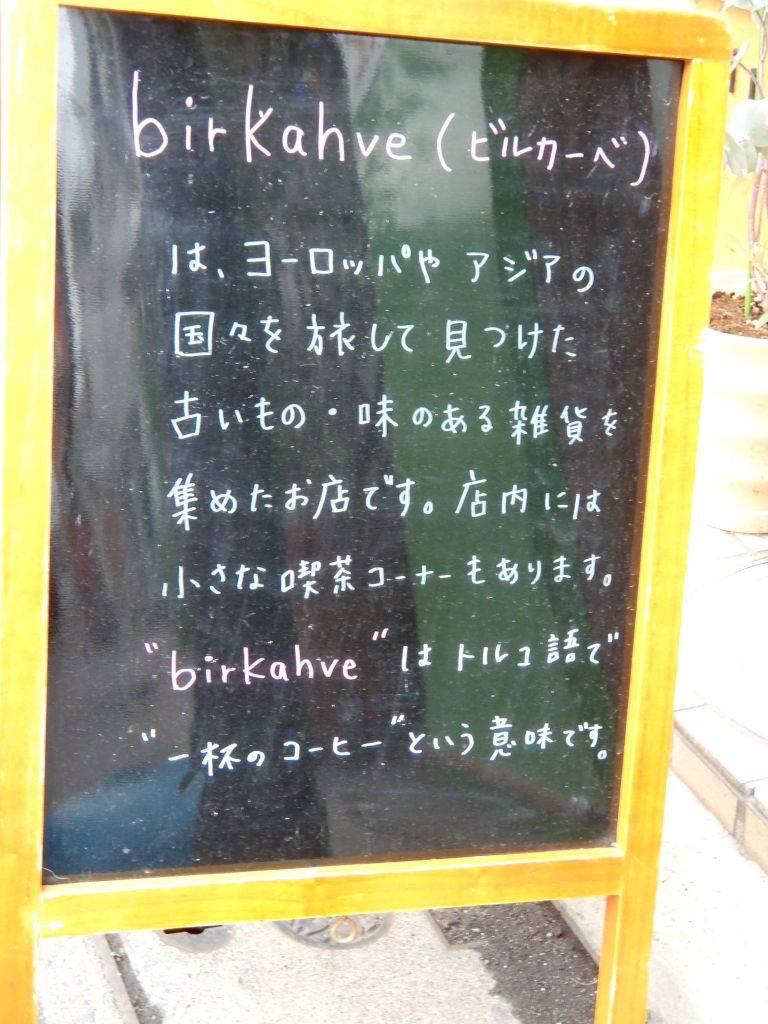 birkahve (ビルカーベ)
は、ヨーロッパや アジアの
国々を 旅して 見つけた
古いもの・味のある 雑貨を
集めたお店です。店内には
小さな 喫茶コーナーもあります。
"birkahve"は トルコ語で
"一杯のコーヒー"という意味です。